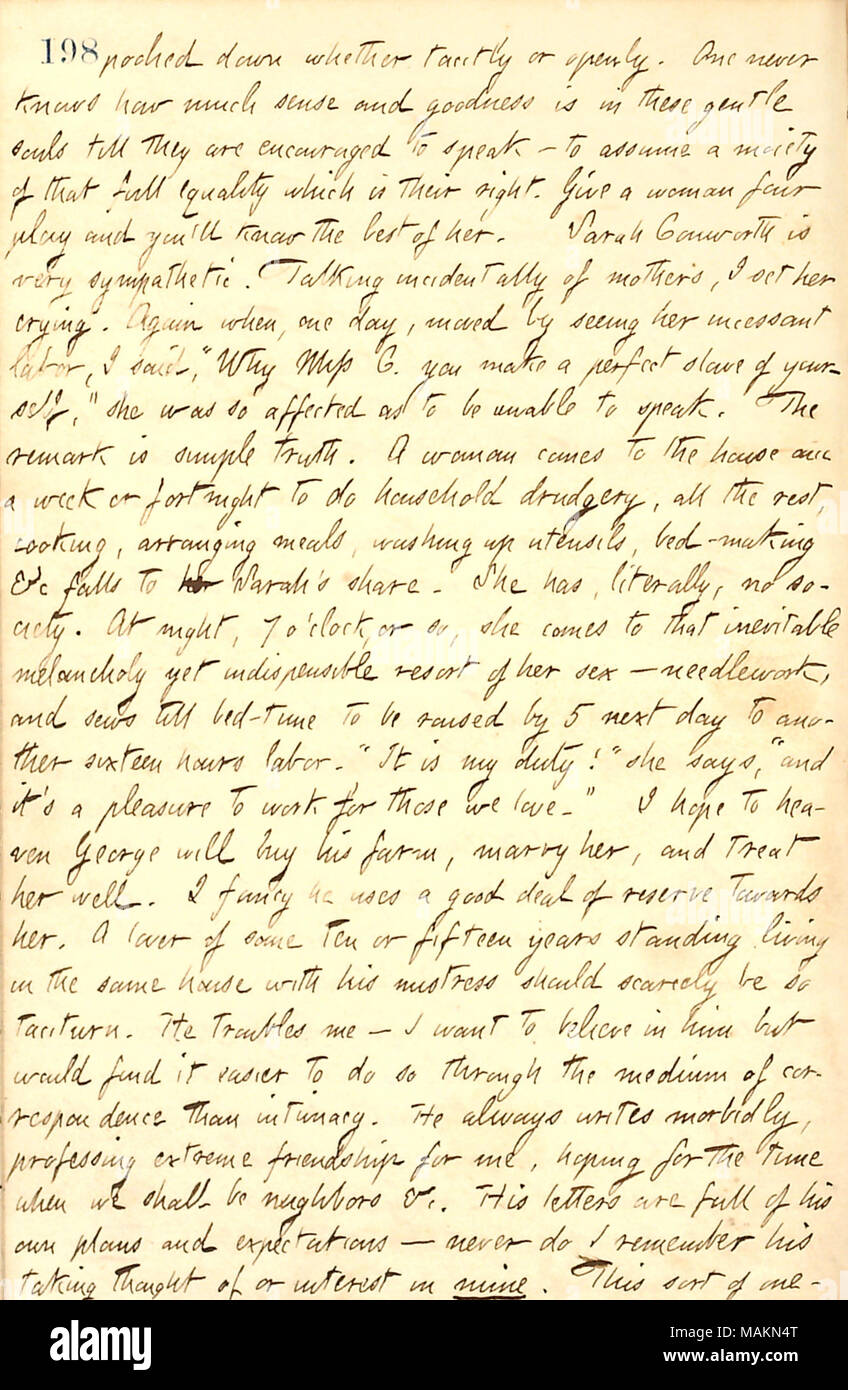 198 pooked down whether tacitly or openly. One never
knows how much sense and goodness is in these gentle
souls till they are encouraged to speak — to assume a moiety
of that full equality which is their right. Give a woman fair
play and you'll know the best of her. Sarah Conworth is
very sympathetic. Talking incidentally of mothers, I set her
crying. Again when, one day, moved by seeing her incessant
labor, I said, "Why Miss C. you make a perfect slave of your-
self," she was so affected as to be unable to speak. The
remark is simple truth. A woman comes to the house once
a week or fortnight to do household drudgery, all the rest,
cooking, arranging meals, washing up utensils, bed-making
&c falls to her Sarah's share. She has, literally, no so-
ciety. At night, 7 o'clock, or so, she comes to that inevitable
melancholy yet indispensible resort of her sex — needlework,
and sews till bed-time to be roused by 5 next day to ano-
ther sixteen hours labor. "It is my duty!" she says, "and
it's a pleasure to work for those we love." I hope to hea-
ven George will buy his farm, marry her, and treat
her well. I fancy he uses a good deal of reserve towards
her. A lover of some ten or fifteen years standing living
in the same house with his mistress should scarcely be so
taciturn. He troubles me — I want to believe in him but
would find it easier to do so through the medium of cor-
respondence than intimacy. He always writes morbidly,
professing extreme friendship for me, hoping for the time
when we shall be neighbors &c. His letters are full of his
own plans and expectations — never do I remember his
taking thought of or interest in mine. This sort of one-
alamy
Image ID: MAKN4T
www.alamy.com